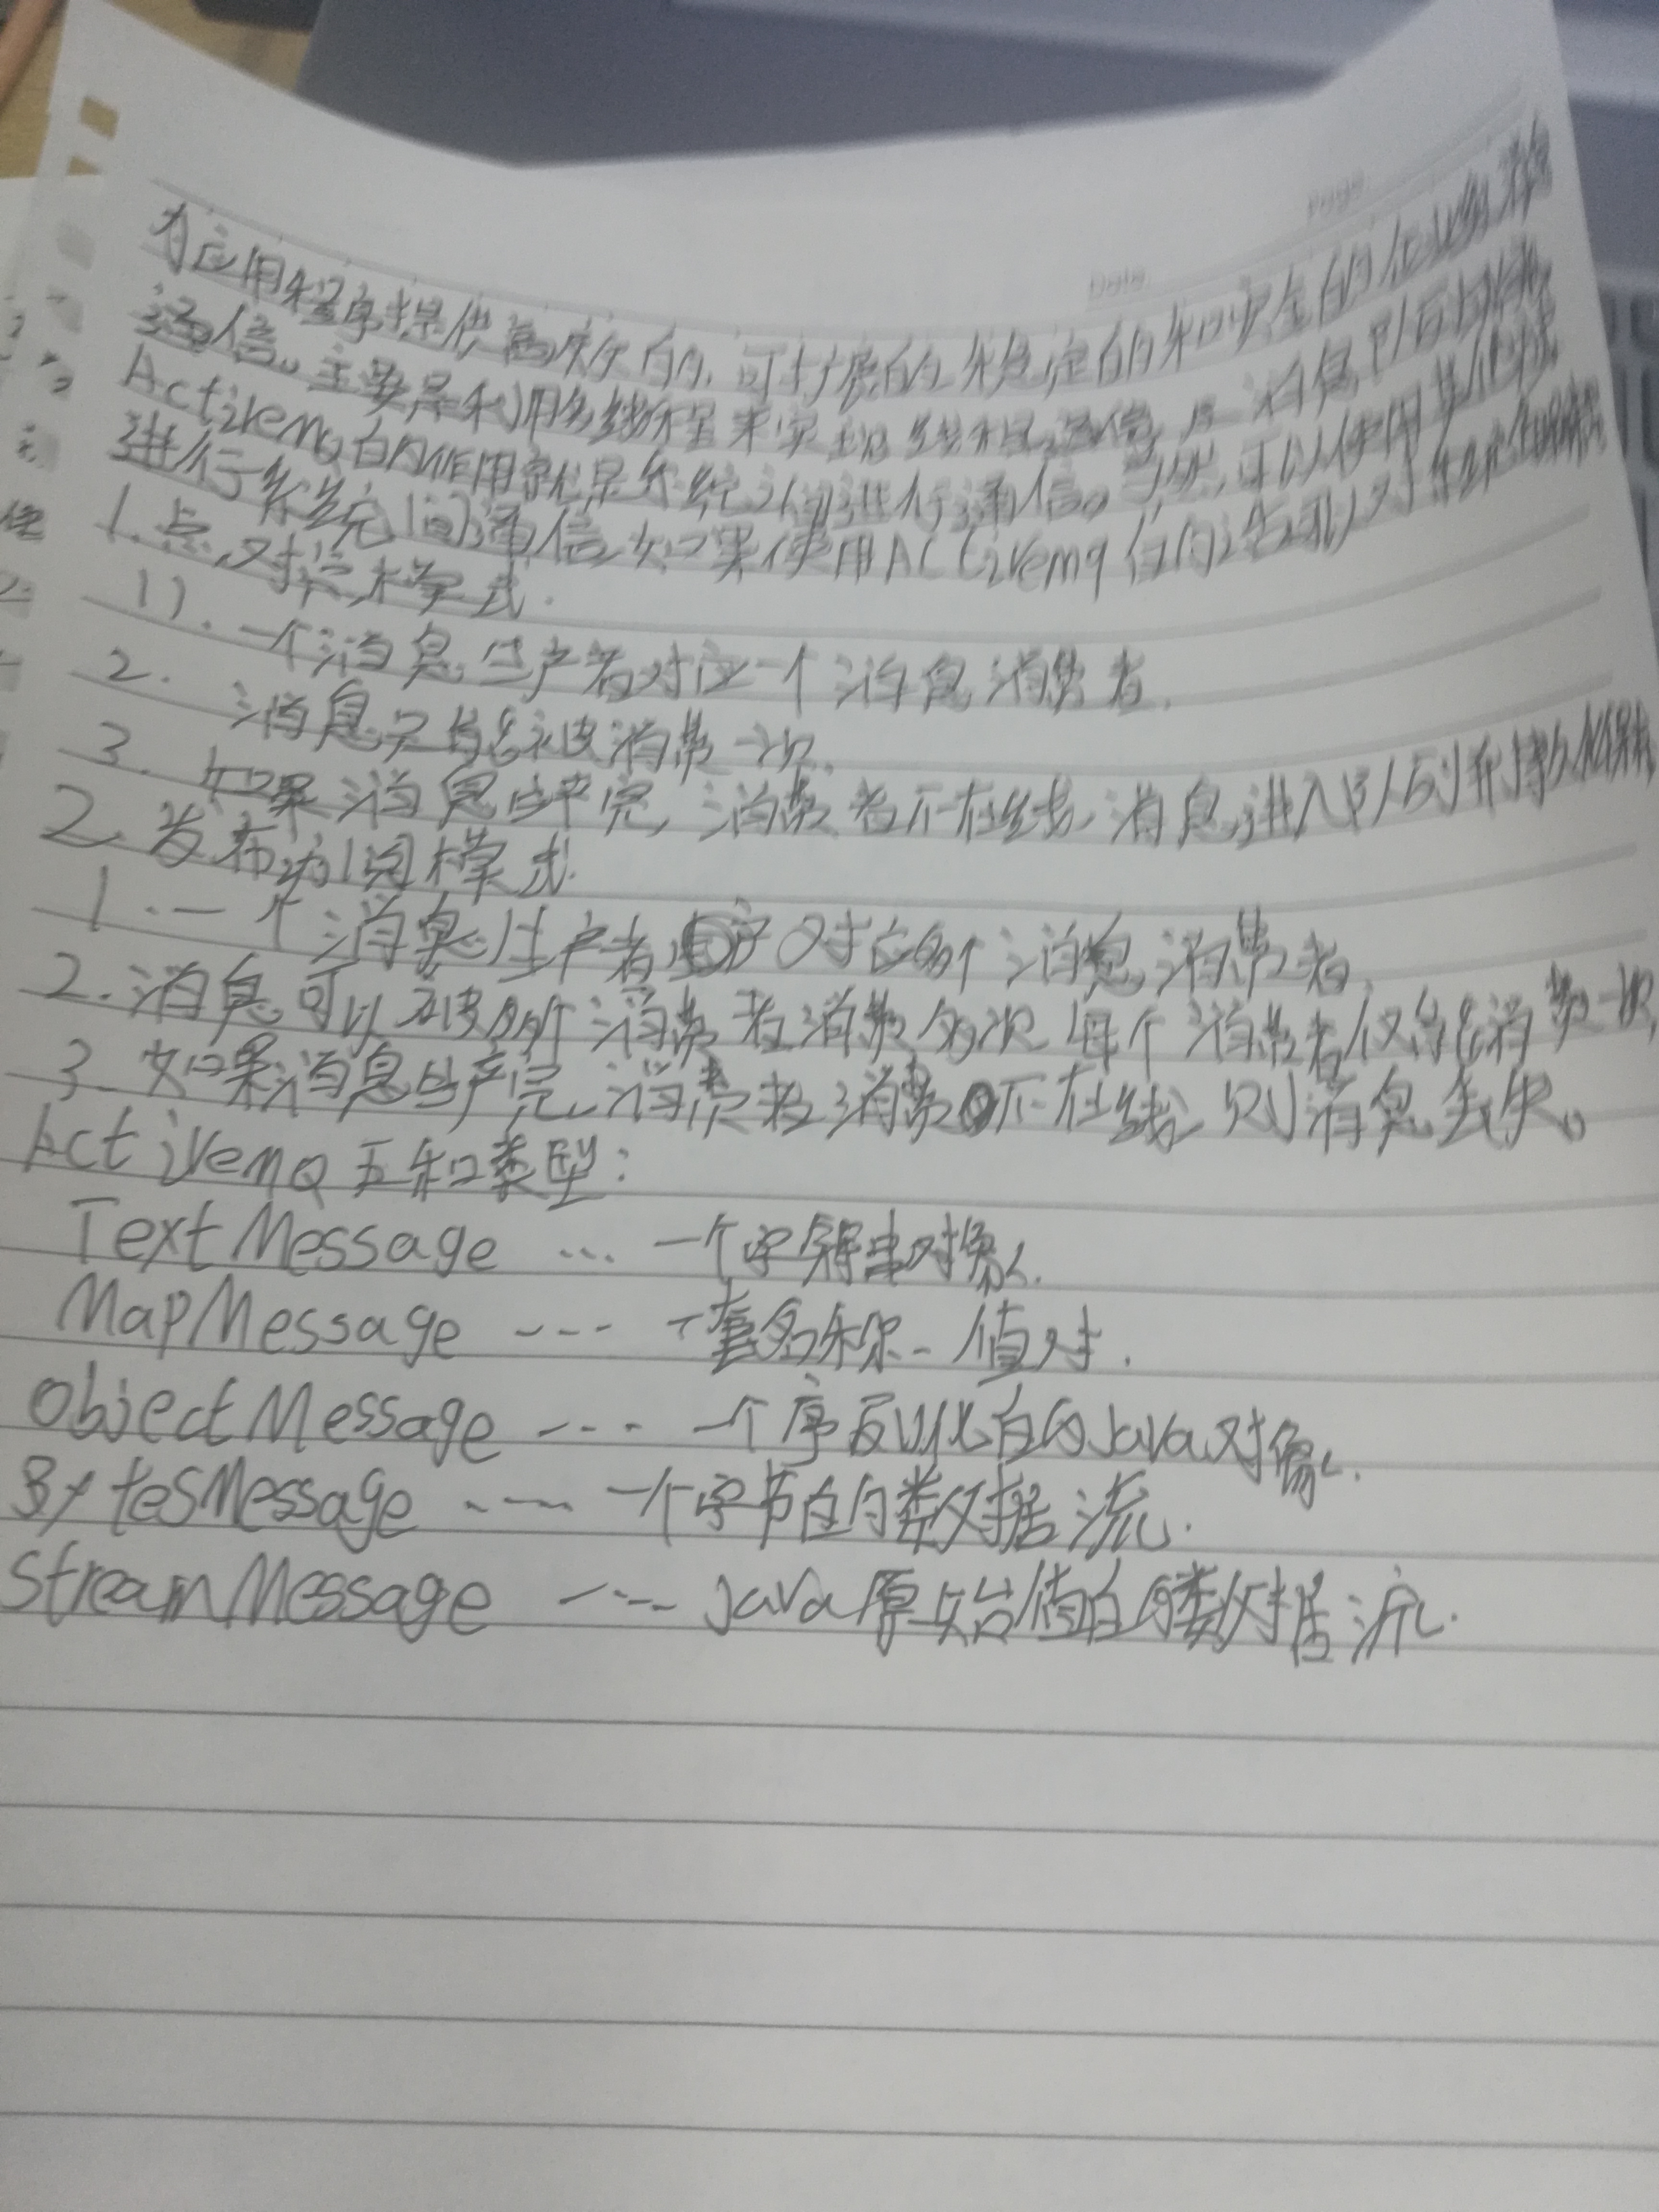 Page.
Date.
为应用程序提供高效的、可扩展的、稳定的和安全的企业级消息
通信。主要是利用多线程来实现
ActivemQ的作用就是系统之间进行通信。当然,可以使用其他
进行系统间通信,如果使用ACtivemq
1.点对点模式.
1).一个消息生产者对应一个消息消费者.
2. 消息只能被消费一次.
3. 如果消息生产完,消费者不在线,消息进入队列并持久
2.发布订阅模式.
1.一个消息生产者 对应多个消息消费者.
2.消息可以被多个消费者消费多次,每个消费者仅能消费一次.
3.如果消息生产完,消费者消费 不在线,则消息丢失。
ActivemQ五种类型:
TextMessage ... 一个字符串对象.
MapMessage --- 一套名称-值对.
ObjectMessage ---- 一个序列化的Java对象.
BytesMessage ---- 一个字节的数据流.
StreamMessage ---- Java原始值的数据流.